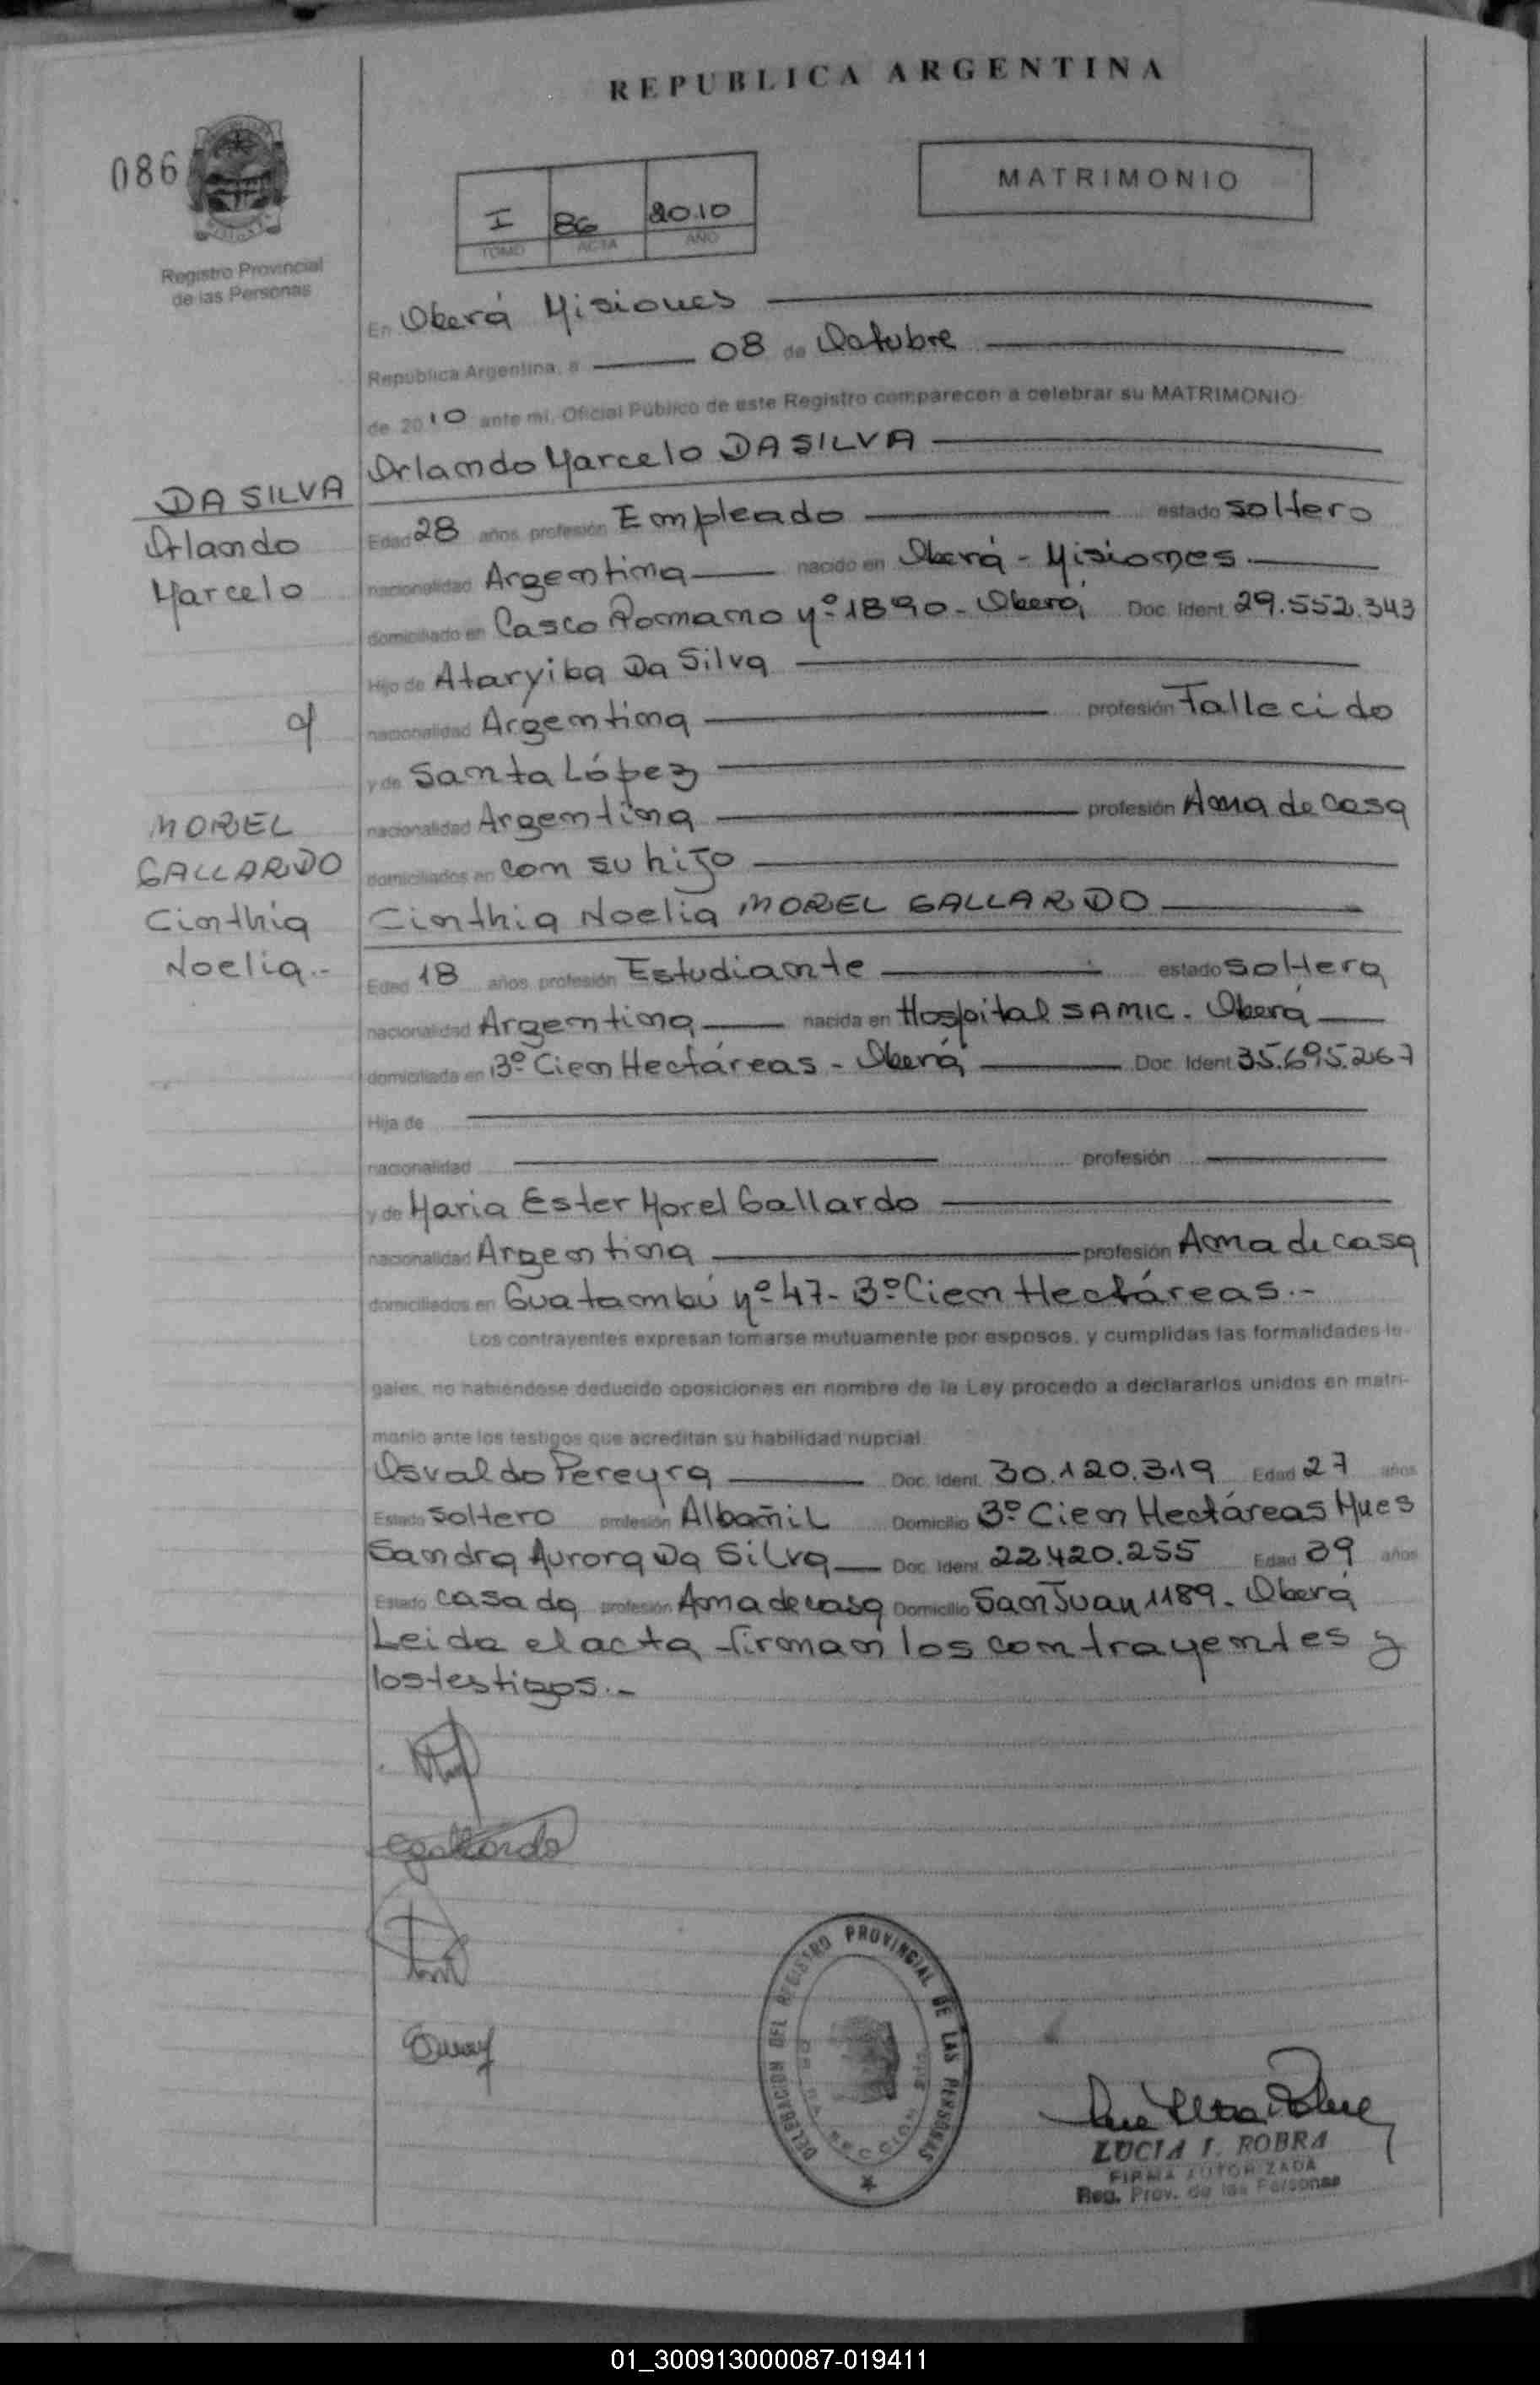 REPUBLICA ARGENTINA
086
MATRIMONIO
I 86 2010
TOMO ACTA AÑO
Registro Provincial
de las Personas
En Oberá Misiones
República Argentina, a 08 de Octubre
de 2010 ante mi, Oficial Público de este Registro comparecen a celebrar su MATRIMONIO
Orlando Marcelo DA SILVA
DA SILVA
Orlando
Marcelo
Edad 28 años profesión Empleado estado soltero
nacionalidad Argentina nacido en Oberá - Misiones.
domiciliado en Casco Romano Nº 1890 - Oberá Doc. Ident. 29.552.343
Hijo de Ataryiba Da Silva
nacionalidad Argentina profesión Fallecido
y de Santa López
nacionalidad Argentina profesión Ama de casa
domiciliados en con su hijo
c/
MOREL
GALLARDO
Cinthia
Noelia.-
Cinthia Noelia MOREL GALLARDO
Edad 18 años profesión Estudiante estado soltera
nacionalidad Argentina nacida en Hospital SAMIC. Oberá
domiciliada en 3º Cien Hectáreas - Oberá Doc. Ident. 35.695.267
Hija de
nacionalidad profesión
y de Maria Ester Morel Gallardo
nacionalidad Argentina profesión Ama de casa
domiciliados en Guatambú Nº 47 - 3º Cien Hectáreas.-
Los contrayentes expresan tomarse mutuamente por esposos, y cumplidas las formalidades le-
gales, no habiéndose deducido oposiciones en nombre de la Ley procedo a declararlos unidos en matri-
monio ante los testigos que acreditan su habilidad nupcial.
Osvaldo Pereyra Doc. Ident. 30.120.319 Edad 27 años
Estado soltero profesión Albañil Domicilio 3º Cien Hectáreas Mues
Sandra Aurora Da Silva Doc. Ident. 22.420.255 Edad 39 años
Estado casada profesión Ama de casa Domicilio San Juan 1189 - Oberá
Leida el acta firman los contrayentes y
los testigos.-
Cgallardo
DELEGACION DEL REGISTRO PROVINCIAL DE LAS PERSONAS
LUCIA I. ROBRA
FIRMA AUTORIZADA
Reg. Prov. de las Personas
01_300913000087-019411